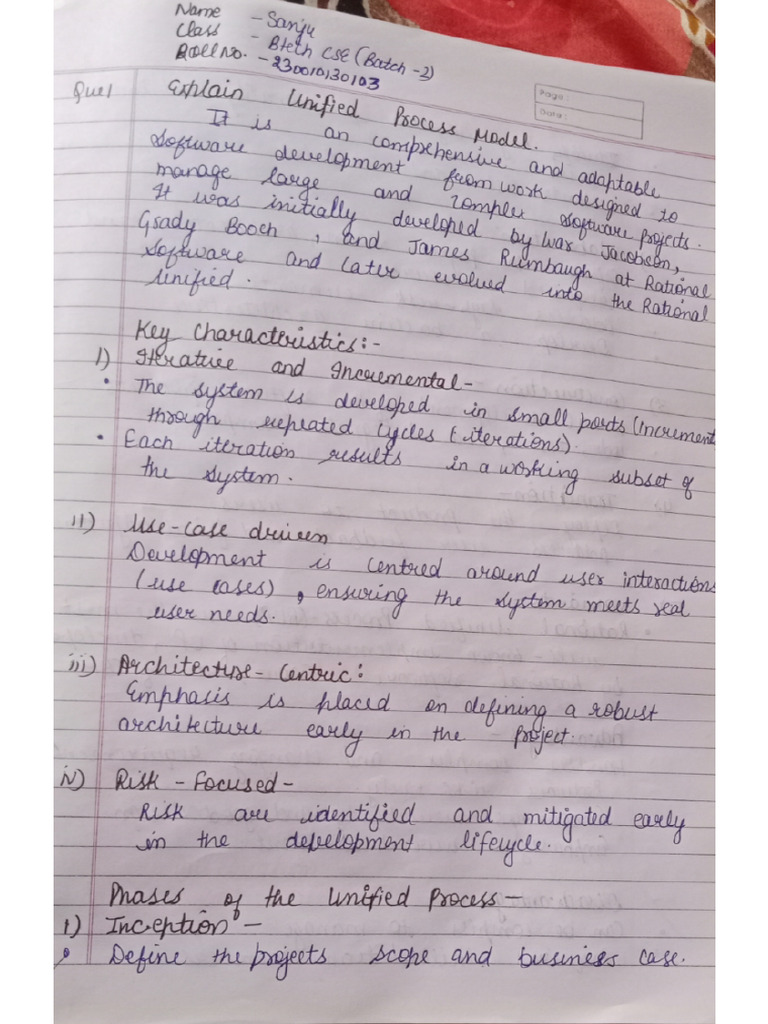 Name - Sanju
Class - Btech CSE (Batch -2)
Roll No. - 230010130103
Page:
Date:
Que1 Explain Unified Process Model.
It is an comprehensive and adaptable
software development from work designed to
manage large and complex software projects.
It was initially developed by Ivar Jacobson,
Grady Booch, and James Rumbaugh at Rational
Software and later evolved into the Rational
Unified.
Key Characteristics:-
1) Iterative and Incremental-
• The system is developed in small parts (Increment
through repeated cycles (iterations).
• Each iteration results in a working subset of
the system.
ii) Use-case driven
Development is centred around user interactions
(use cases), ensuring the system meets real
user needs.
iii) Architecture-Centric:
Emphasis is placed on defining a robust
architecture early in the project.
iv) Risk - Focused-
Risk are identified and mitigated early
in the development lifecycle.
Phases of the Unified Process-
1) Inception -
• Define the projects scope and business case.